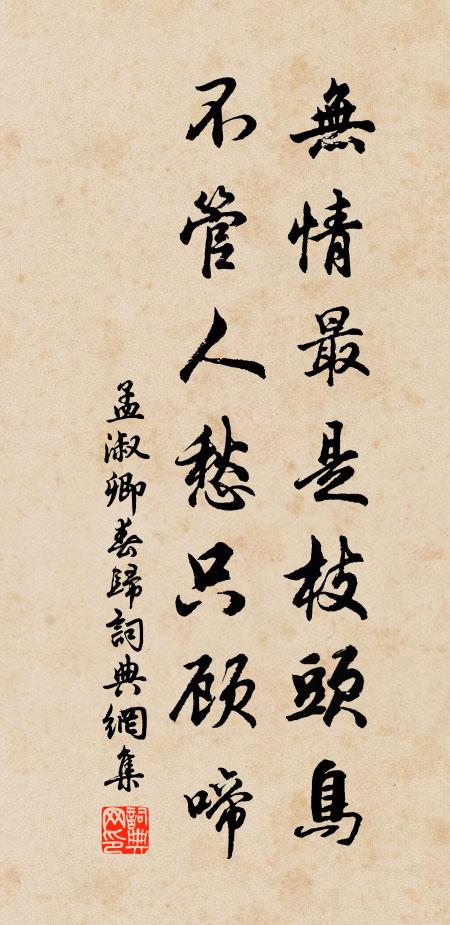 無情最是枝頭鳥
不管人愁只顾啼
孟淑卿春歸詞典網集
詞典网印